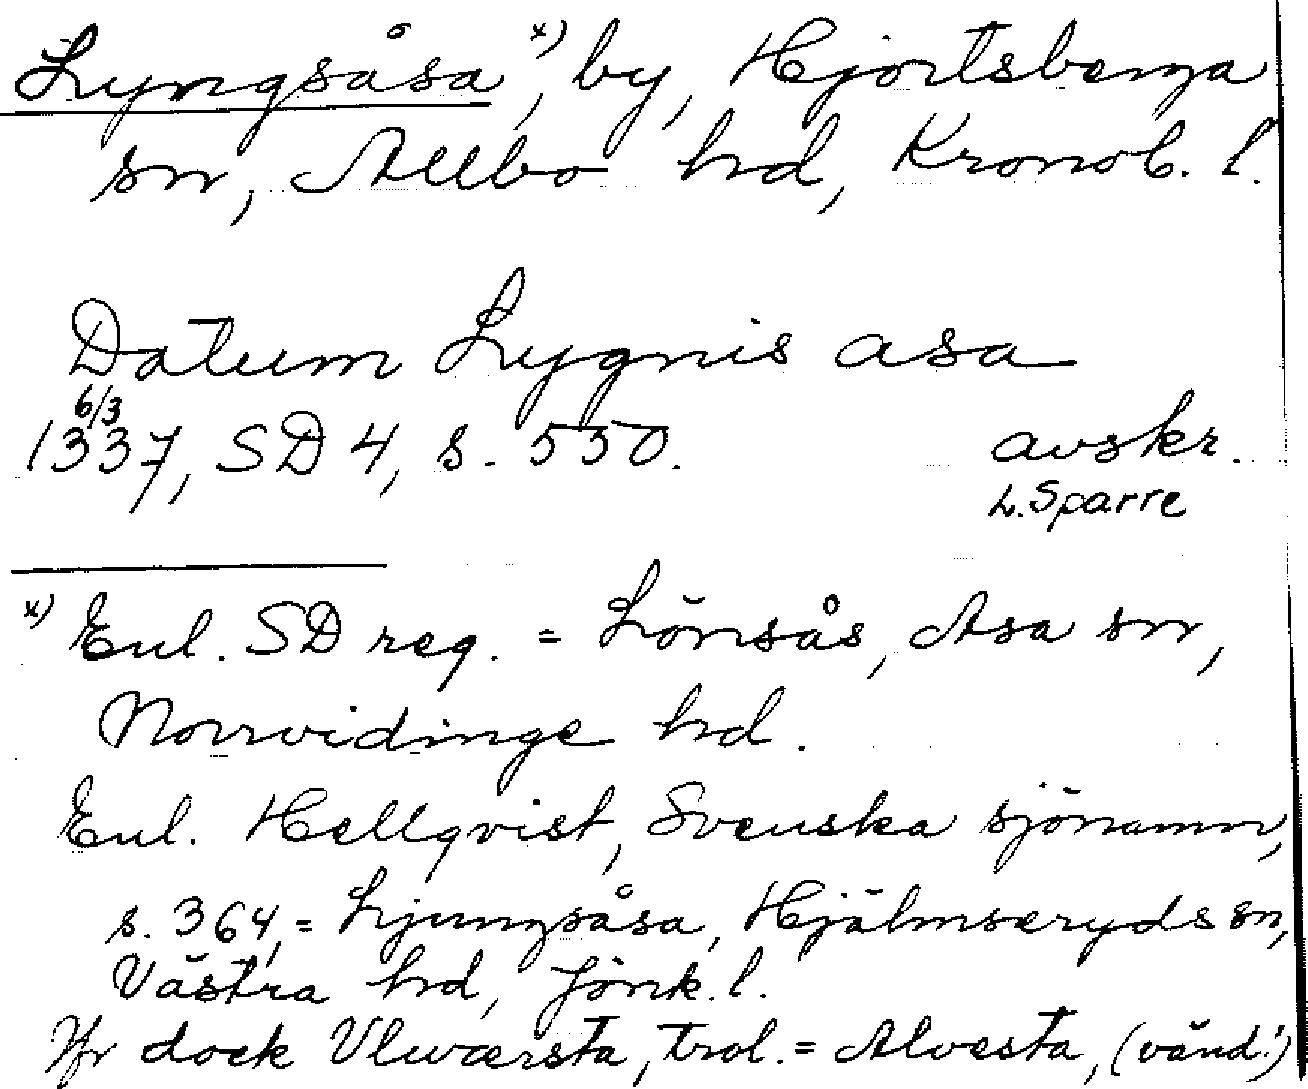 Lyngsåsa x), by, Hjortsberga
sn, Allbo hd, Kronob. l.
Datum Lygnis asa
6/3
1337, SD 4, s. 550.
avskr.
L. Sparre
x) Enl. SD reg. = Lönsås, Asa sn,
Norrvidinge hd.
Enl. Hellqvist, Svenska sjönamn,
s. 364, = Ljungsåsa, Hjälmseryds sn,
Västra hd, Jönk. l.
Jfr dock Vlwærsta, trol. = Alvesta, (vänd!)